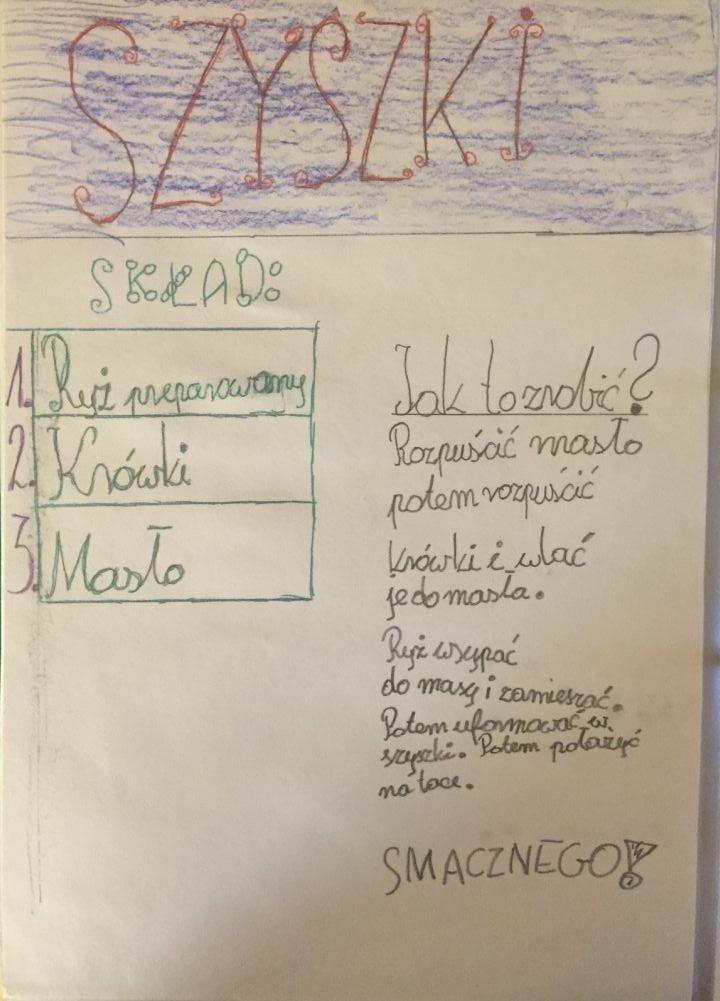 SZYSZKI
SKŁAD:
1. Ryż preparowany
2. Krówki
3. Masło
Jak to zrobić?
Rozpuścić masło
potem rozpuścić
krówki i wlać
je do masła.
Ryż wsypać
do masy i zamieszać.
Potem uformować w
szyszki. Potem położyć
na tace.
SMACZNEGO!